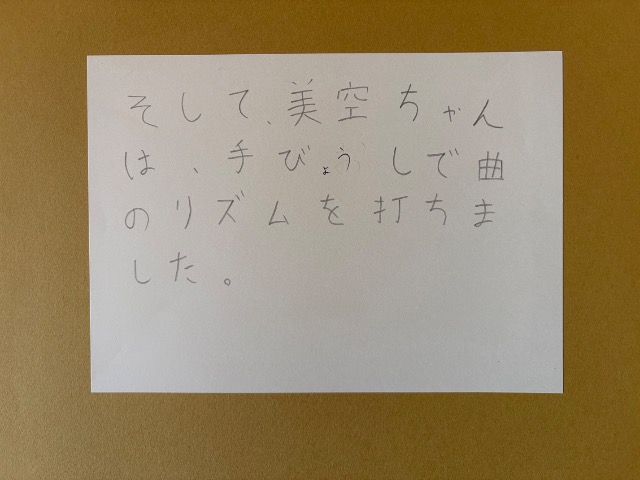 そして、美空ちゃん
は、手びょうしで曲
のリズムを打ちま
した。